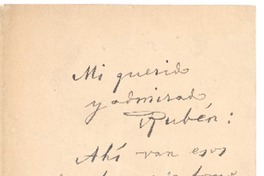 Mi querido
y admirado
Rubén:
Ahí van esos